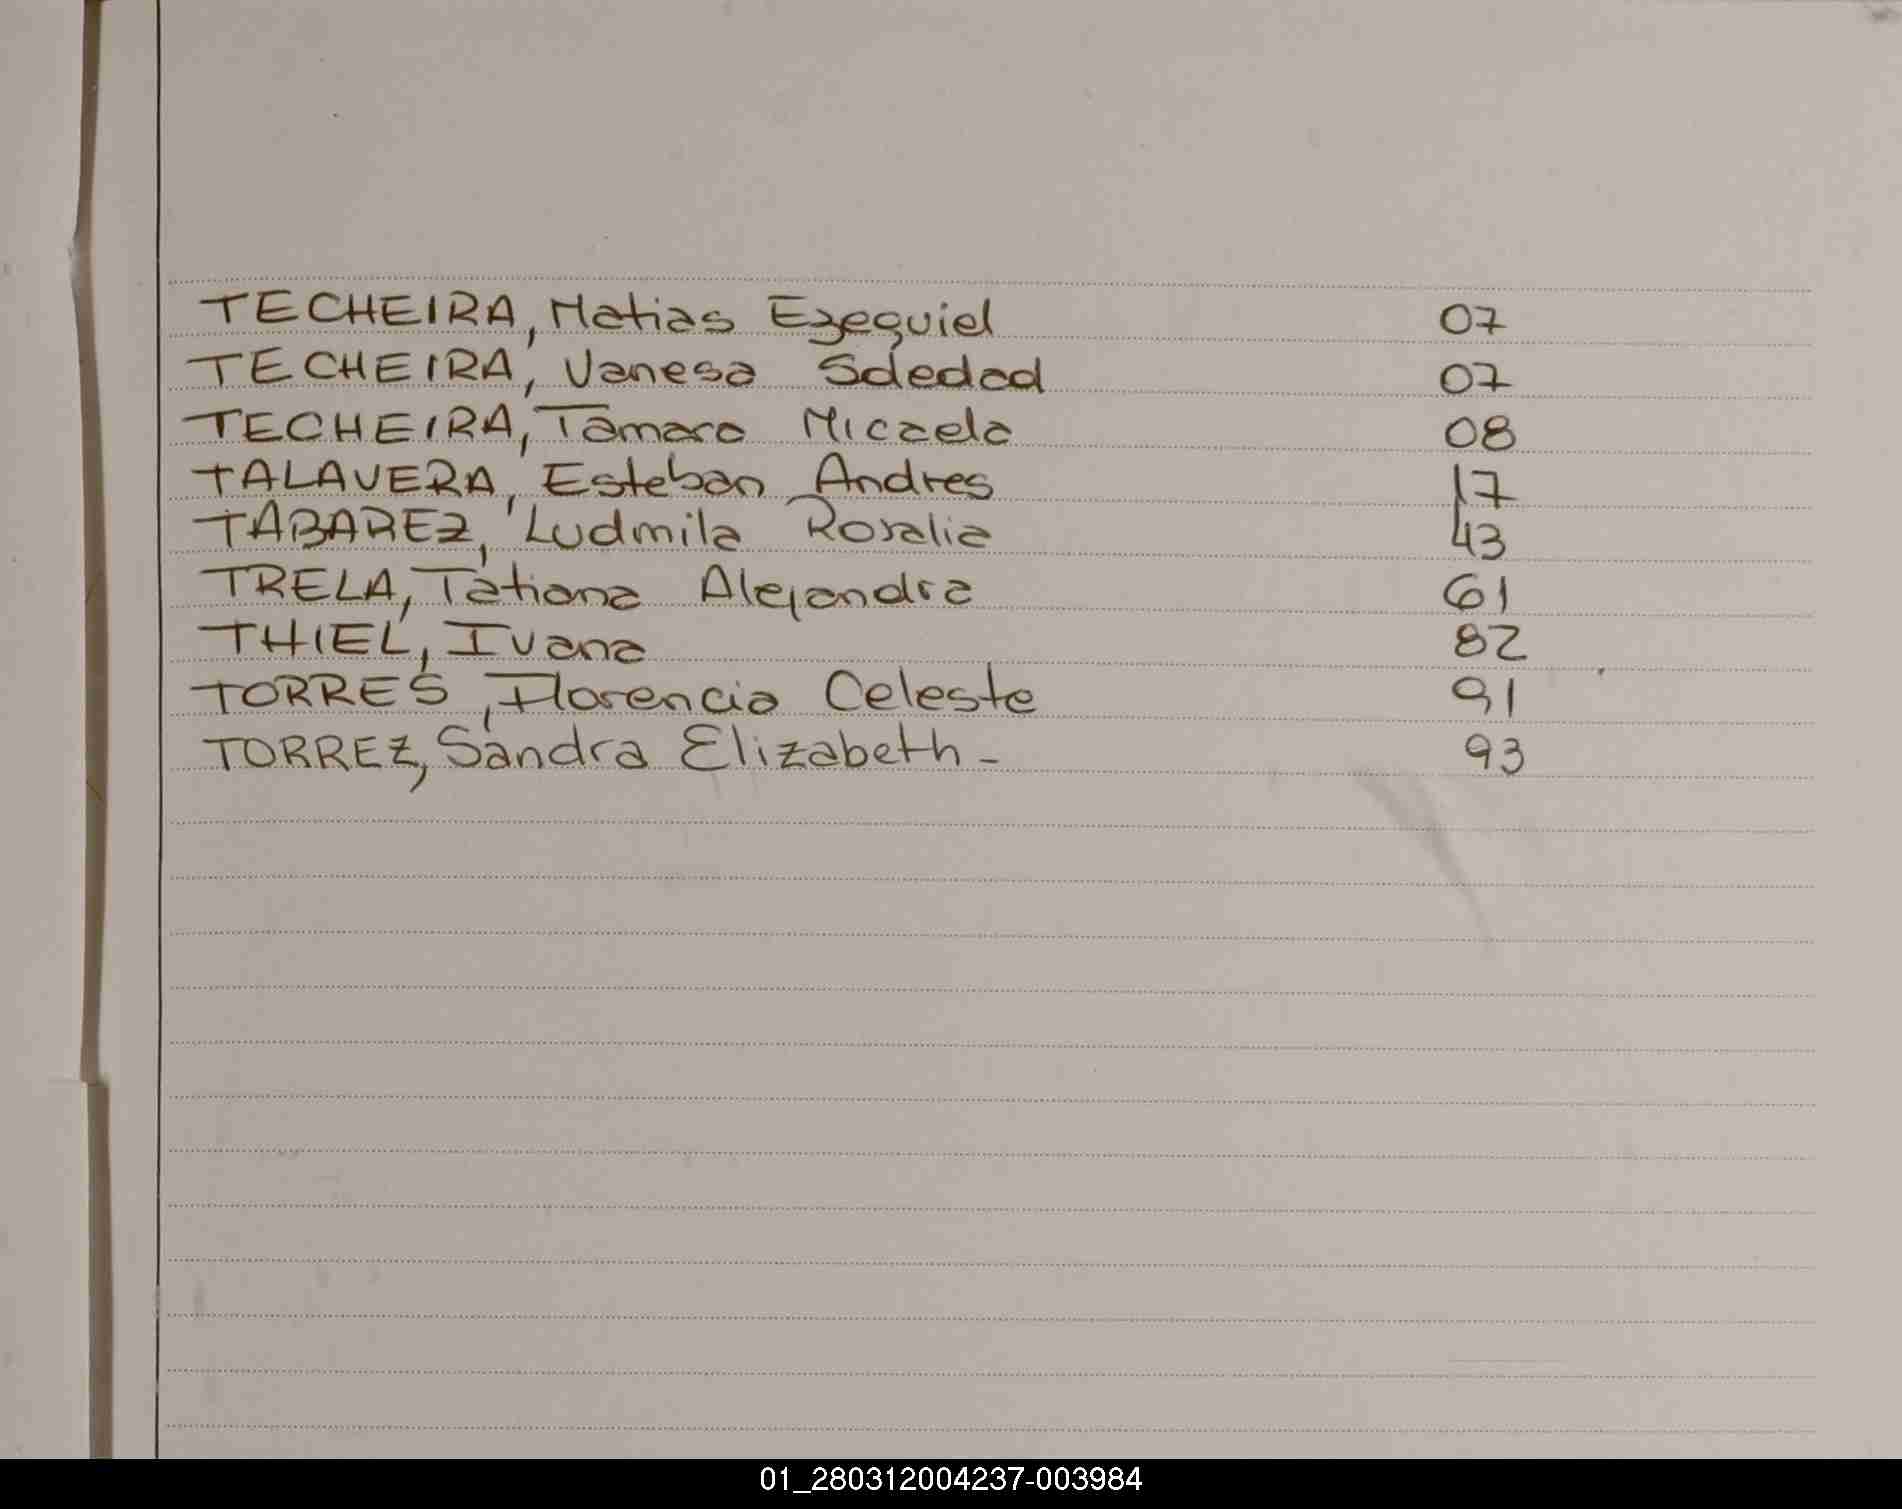 TECHEIRA, Matias Ezequiel 07
TECHEIRA, Vanesa Soledad 07
TECHEIRA, Tamara Micaela 08
TALAVERA, Esteban Andres 17
TABAREZ, Ludmila Rosalia 43
TRELA, Tatiana Alejandra 61
THIEL, Ivana 82
TORRES, Florencia Celeste 91
TORREZ, Sandra Elizabeth - 93
01_280312004237-003984